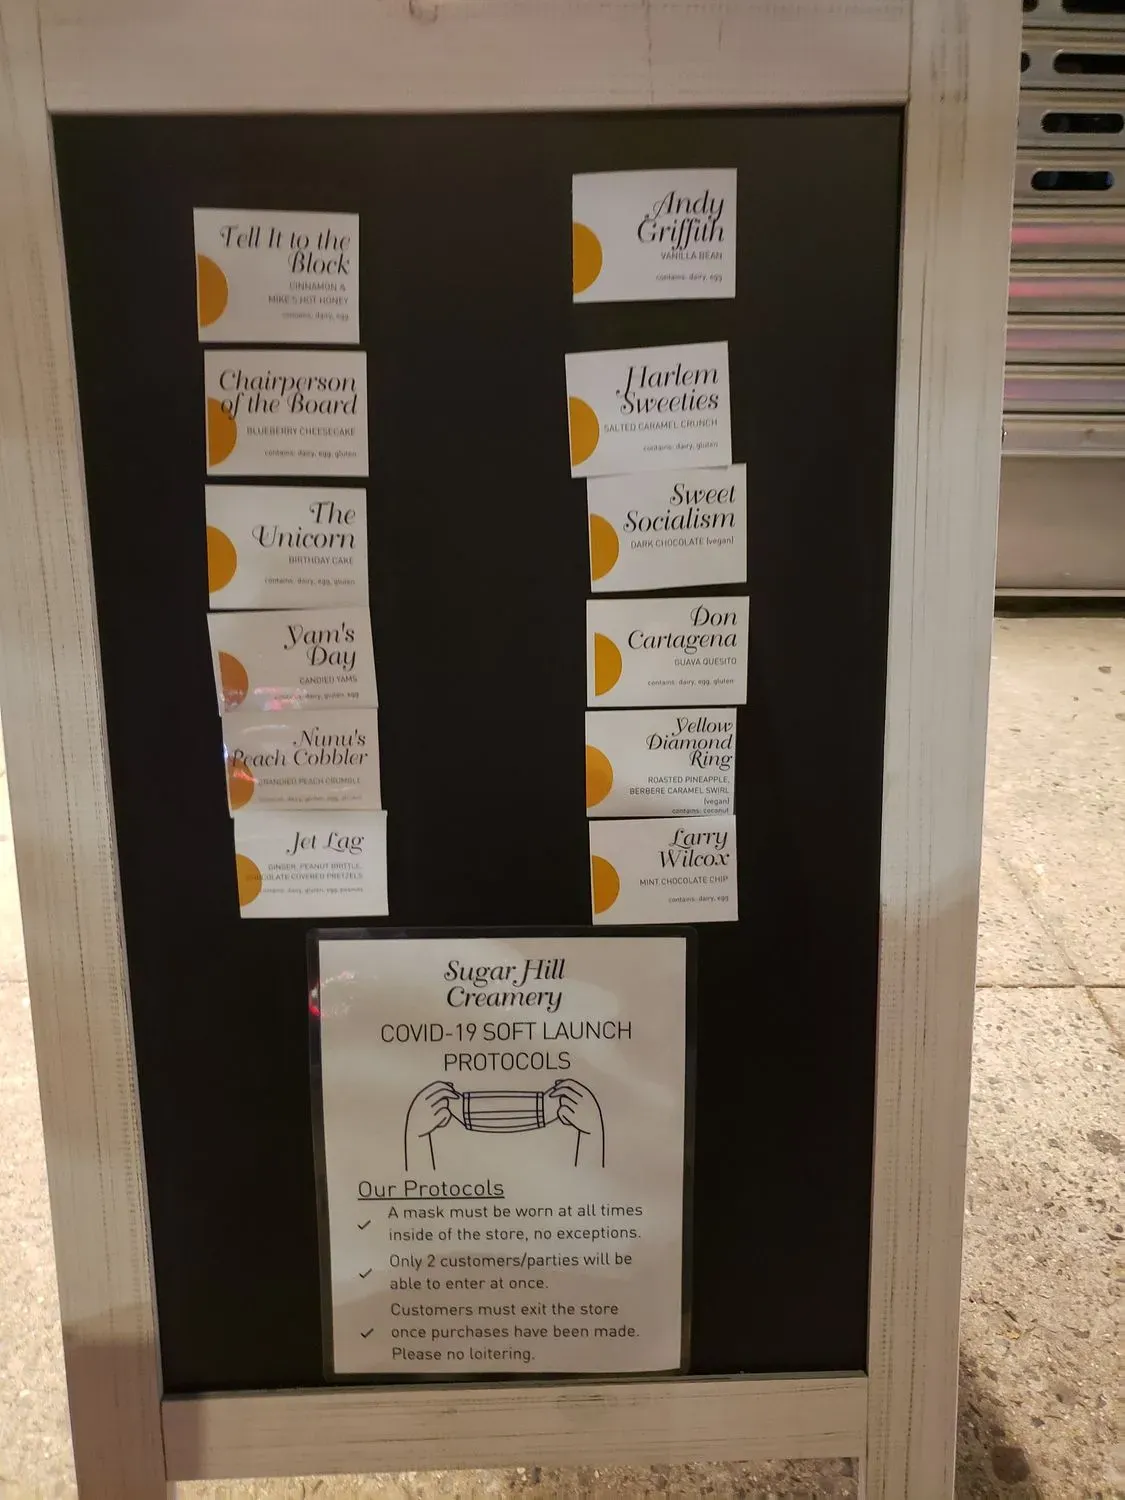 Tell It to the
Block
CINNAMON &
MIKE'S HOT HONEY
contains: dairy, egg
Chairperson
of the Board
BLUEBERRY CHEESECAKE
contains: dairy, egg, gluten
The
Unicorn
BIRTHDAY CAKE
contains: dairy, egg, gluten
Yam's
Day
CANDIED YAMS
contains: dairy, gluten, egg
Nunu's
Peach Cobbler
BRANDIED PEACH CRUMBLE
contains: dairy, gluten, egg,
Jet Lag
GINGER, PEANUT BRITTLE,
CHOCOLATE COVERED PRETZELS
contains: dairy, gluten, egg, peanuts
Andy
Griffith
VANILLA BEAN
contains: dairy, egg
Harlem
Sweeties
SALTED CARAMEL CRUNCH
contains: dairy, gluten
Sweet
Socialism
DARK CHOCOLATE (vegan)
Don
Cartagena
GUAVA QUESITO
contains: dairy, egg, gluten
Yellow
Diamond
Ring
ROASTED PINEAPPLE,
BERBERE CARAMEL SWIRL
(vegan)
contains: coconut
Larry
Wilcox
MINT CHOCOLATE CHIP
contains: dairy, egg
Sugar Hill
Creamery
COVID-19 SOFT LAUNCH
PROTOCOLS
Our Protocols
A mask must be worn at all times
inside of the store, no exceptions.
Only 2 customers/parties will be
able to enter at once.
Customers must exit the store
once purchases have been made.
Please no loitering.